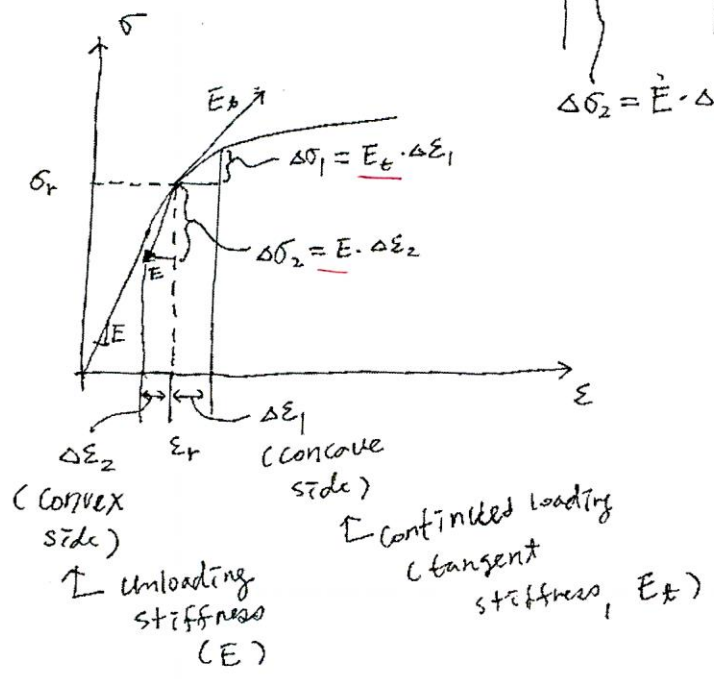 σ
Δσ₂ = Ė·Δ
E_t
Δσ₁ = E_t·Δε₁
σ_r
Δσ₂ = E·Δε₂
E
E
ε
Δε₂
ε_r
Δε₁
(convex
side)
(concave
side)
unloading
stiffness
(E)
continued loading
(tangent
stiffness, E_t)